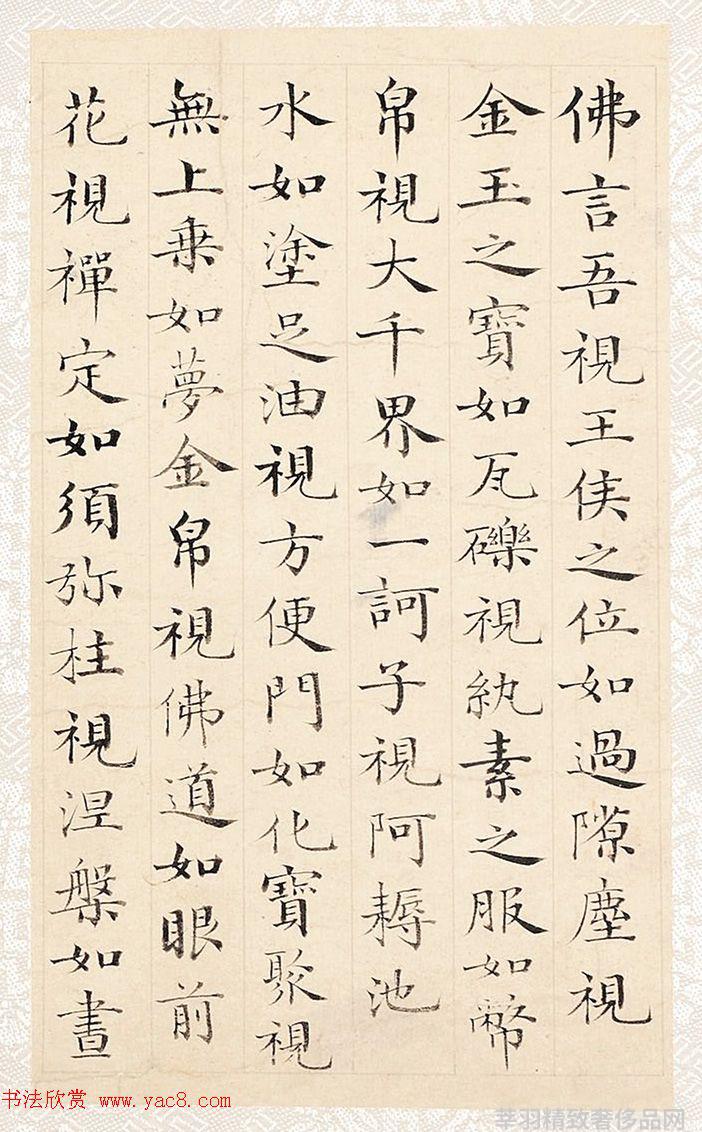 佛言吾視王侯之位如過隙塵視
金玉之寶如瓦礫視紈素之服如幣
帛視大千界如一訶子視阿耨池
水如塗足油視方便門如化寶聚視
無上乗如夢金帛視佛道如眼前
花視禪定如須弥柱視涅槃如晝
书法欣赏 www.yac8.com
芏羽精致奢侈品网